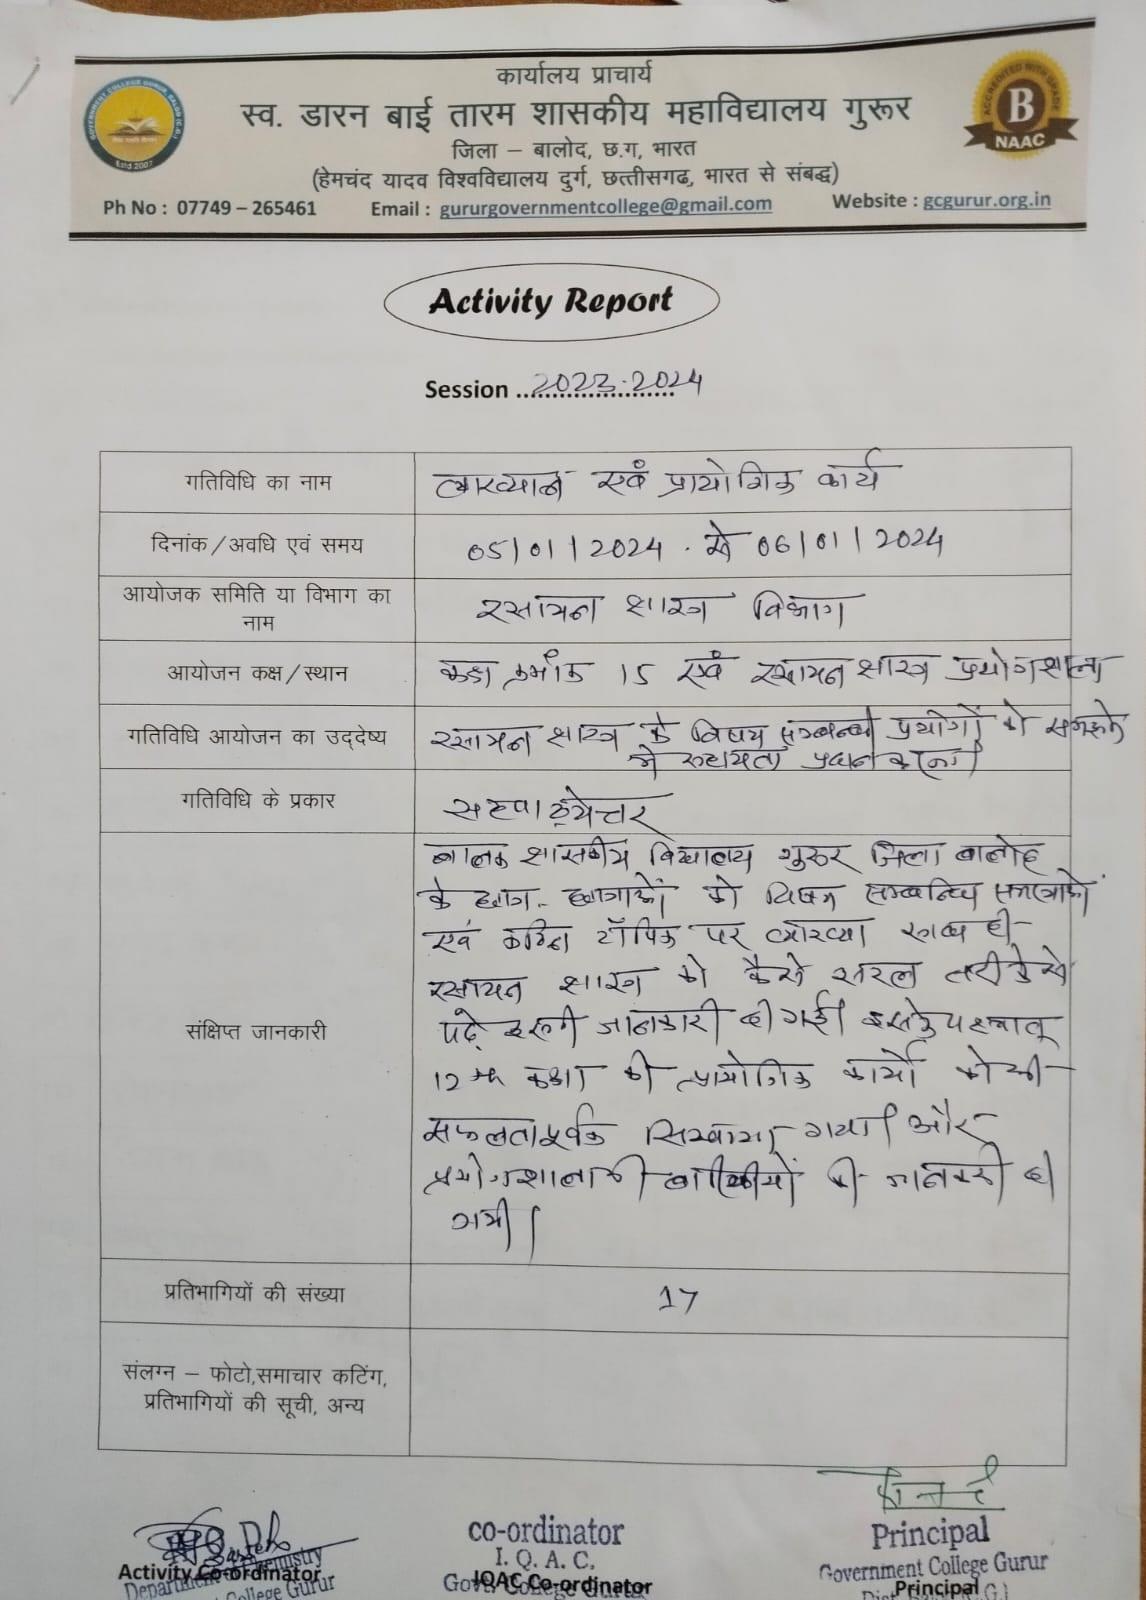 कार्यालय प्राचार्य
स्व. डारन बाई तारम शासकीय महाविद्यालय गुरूर
जिला – बालोद, छ.ग, भारत
(हेमचंद यादव विश्वविद्यालय दुर्ग, छत्तीसगढ, भारत से संबद्ध)
Ph No : 07749 – 265461 Email : gururgovernmentcollege@gmail.com Website : gcgurur.org.in
Estd 2007
ACCREDITED WITH GRADE
B
NAAC
Activity Report
Session 2023-2024
गतिविधि का नाम
व्याख्यान एवं प्रायोगिक कार्य
दिनांक/अवधि एवं समय
05/01/2024 . से 06/01/2024
आयोजक समिति या विभाग का
नाम
रसायन शास्त्र विभाग
आयोजन कक्ष/स्थान
कक्ष क्रमांक 15 एवं रसायन शास्त्र प्रयोगशाला
गतिविधि आयोजन का उद्देष्य
रसायन शास्त्र के विषय सम्बन्धी प्रयोगों को समझने
में सहायता प्रदान करना
गतिविधि के प्रकार
संक्षिप्त जानकारी
बालक शासकीय विद्यालय गुरुर जिला बालोद
के छात्र-छात्राओं को विषय सम्बन्धि समस्याओं
एवं कठिन टॉपिक पर व्याख्या
रसायन शास्त्र को कैसे सरल तरीके से
पढ़े इसकी जानकारी दी गई। इसके पश्चात्
12 कक्षा की प्रायोगिक कार्यो को भी
सफलतापूर्वक सिखाया गया और
प्रयोगशाला की बारीकीयों की जानकारी दी
गयी।
प्रतिभागियों की संख्या
17
संलग्न – फोटो,समाचार कटिंग,
प्रतिभागियों की सूची, अन्य
Activity Co-ordinator
Department of Chemistry
College Gurur
co-ordinator
I. Q. A. C.
Govt. College Gurur
IQAC Co-ordinator
Principal
Government College Gurur
Principal